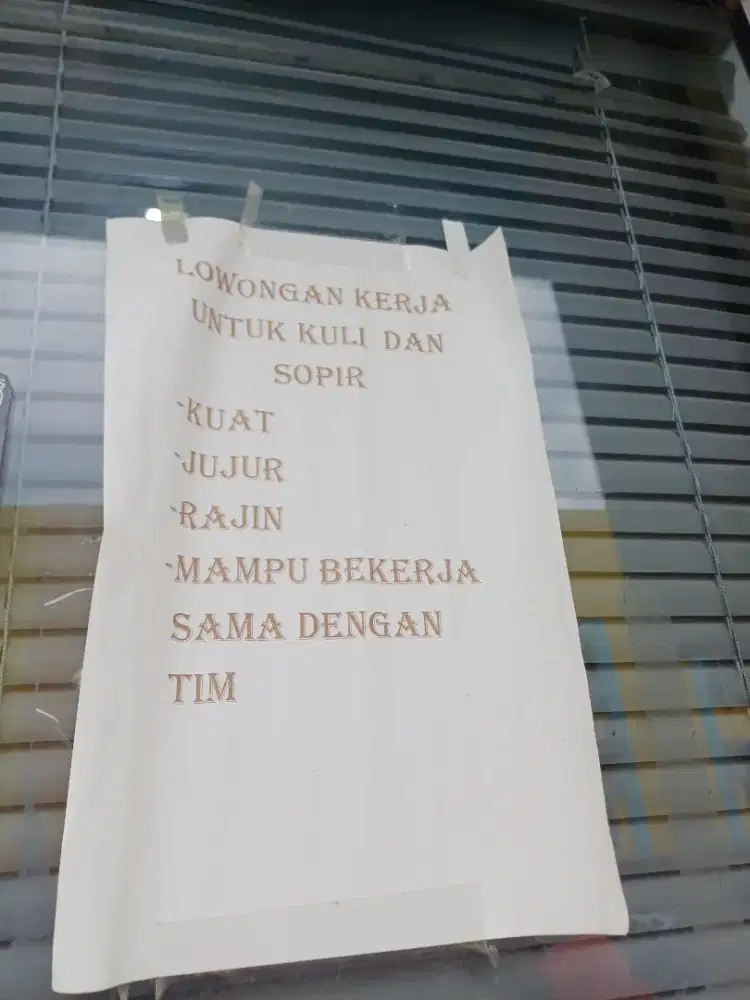 LOWONGAN KERJA
UNTUK KULI DAN
SOPIR
-KUAT
-JUJUR
-RAJIN
-MAMPU BEKERJA
SAMA DENGAN
TIM